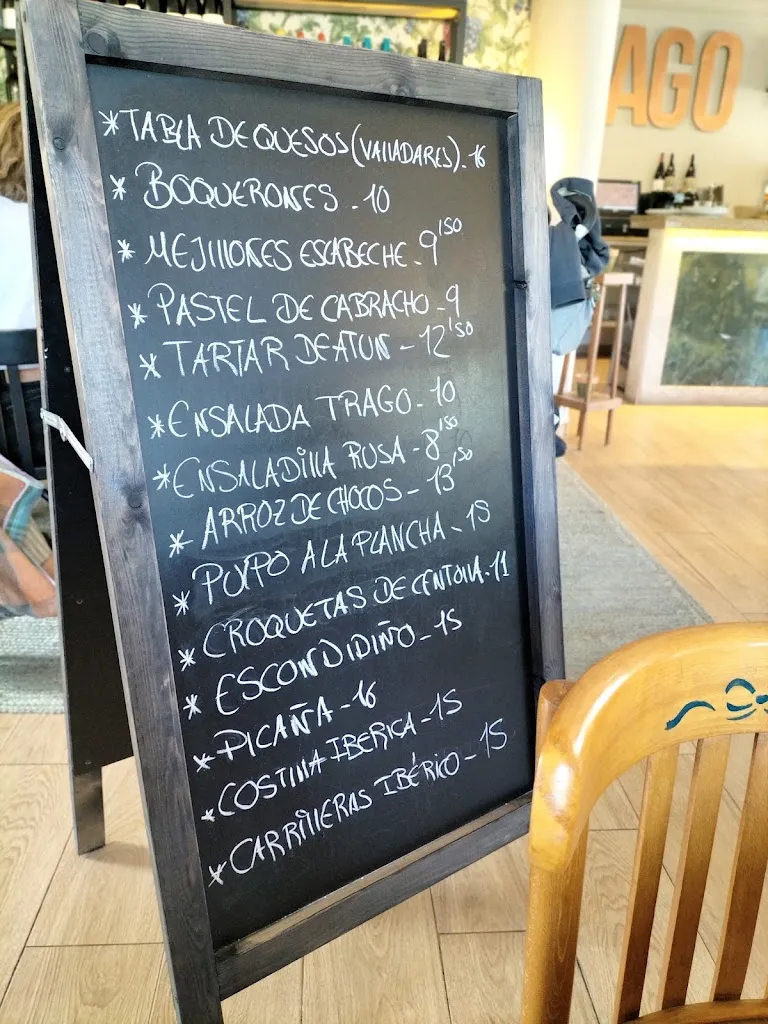 AGO
*TABLA DE QUESOS (VALLADARES). 16
* BOQUERONES . 10
* MEJILLONES ESCABECHE . 9'50
* PASTEL DE CABRACHO - 9
* TARTAR DE ATUN - 12'50
* ENSALADA TRAGO - 10
* ENSALADILLA RUSA - 8'50
* ARROZ DE CHOCOS - 13'50
* PULPO A LA PLANCHA - 15
* CROQUETAS DE CENTOLLA - 11
* ESCONDIDIÑO - 15
* PICAÑA - 16
* COSTILLA IBERICA - 15
* CARRILLERAS IBÉRICO - 15